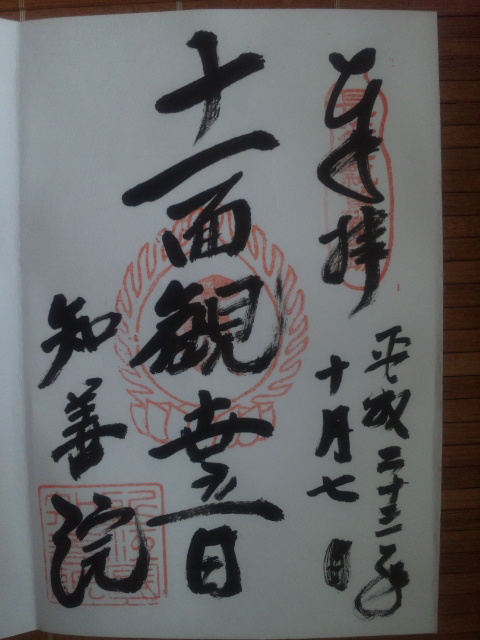 奉拝
平成二十三年
十月七日
十一面観世音
知善院